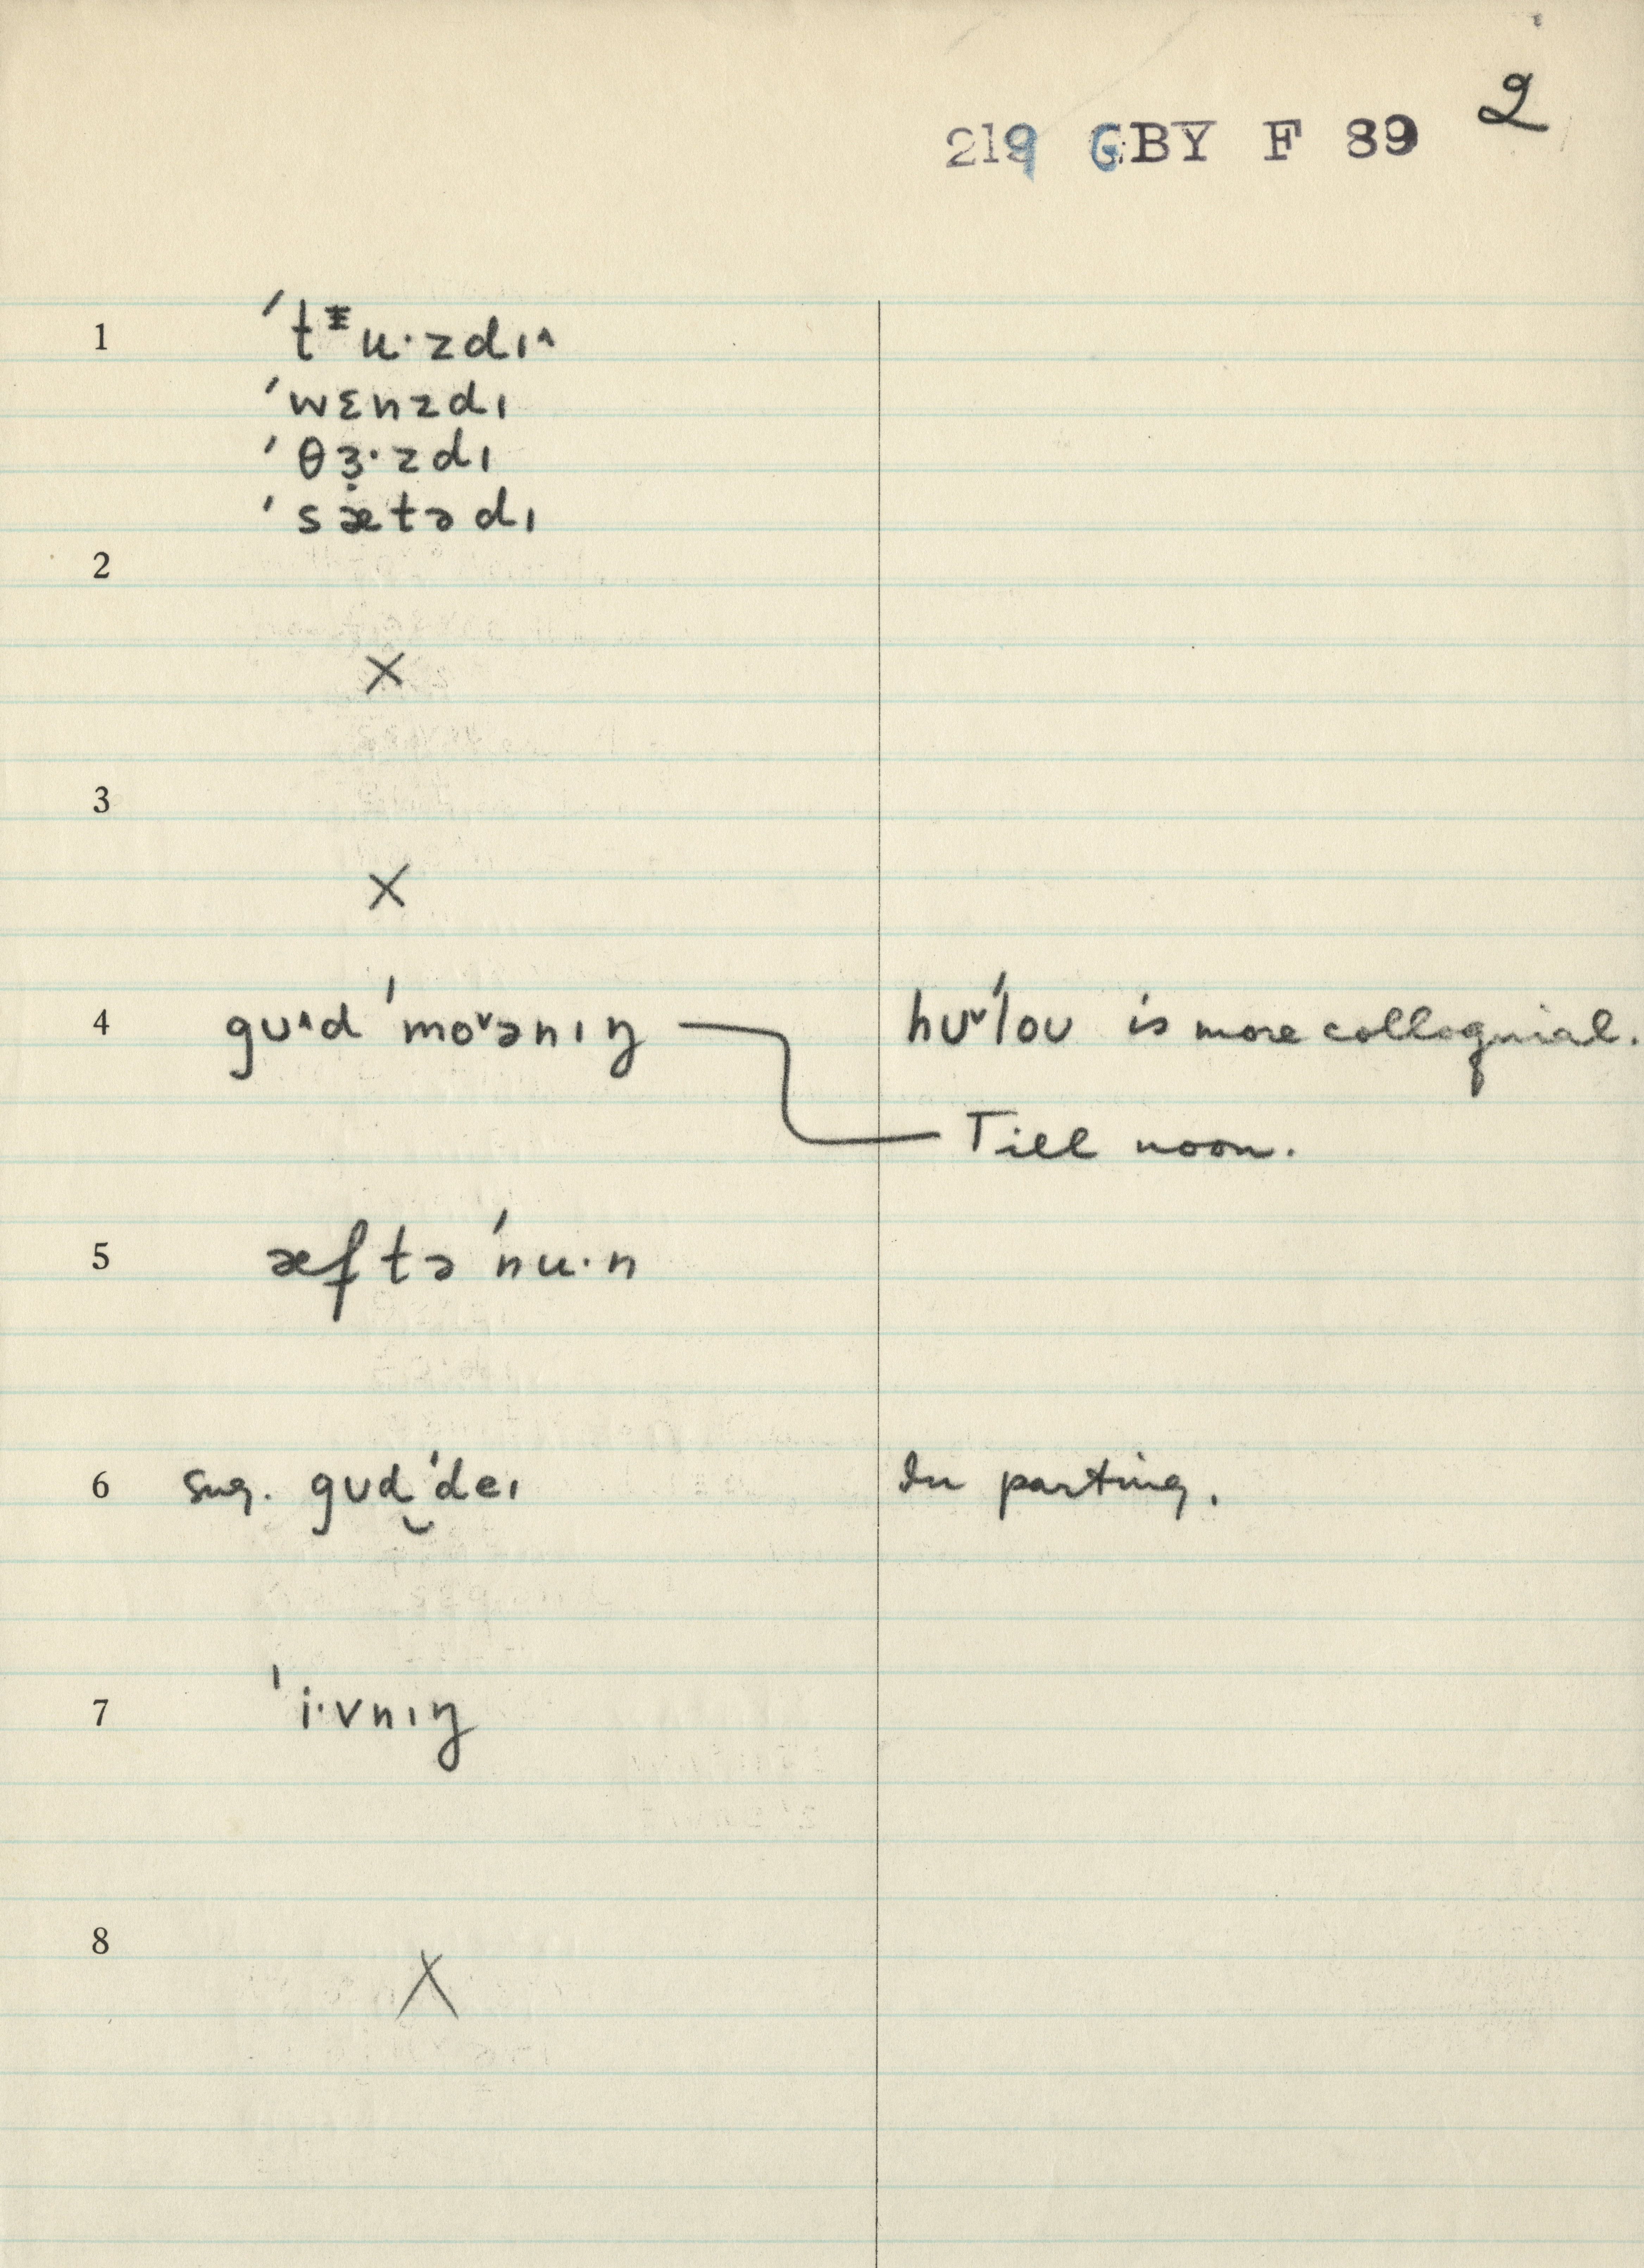 2
219 GBY F 89
1 ˈtᵻu·zdɪ^
ˈwɛnzdɪ
ˈθɜ̣·zdɪ
ˈsætədɪ
2
×
3
×
4 gʊ^d ˈmo˅ənɪŋ hʊ˅ˈloʊ is more colloquial.
Till noon.
5 æftəˈnu·n
6 sug. gʊd‿ˈdeɪ In parting.
7 ˈi·vnɪŋ
8
×